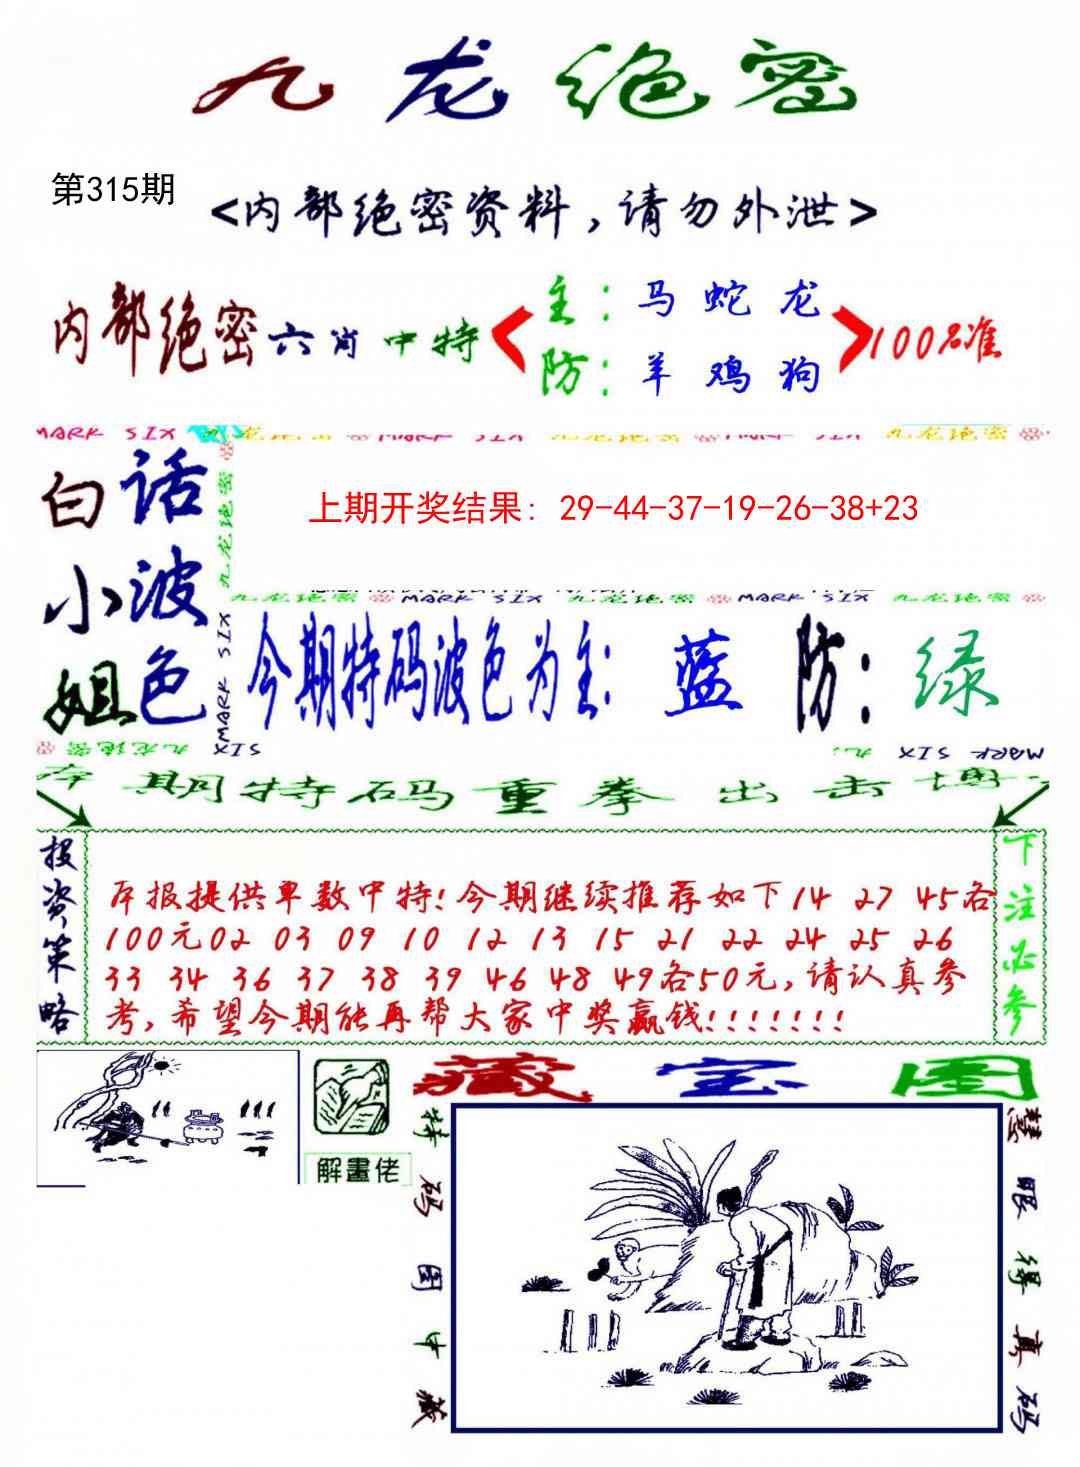 九龙绝密
第315期
<内部绝密资料,请勿外泄>
内部绝密六肖中特
主:马蛇龙
防:羊鸡狗
100%准
MARK SIX 九龙绝密 MARK SIX 九龙绝密 MARK SIX 九龙绝密
白话小波姐色
九龙绝密
MARK SIX
上期开奖结果: 29-44-37-19-26-38+23
九龙绝密 MARK SIX 九龙绝密 MARK SIX 九龙绝密
今期特码波色为主: 蓝 防: 绿
九龙绝密 MARK SIX
本期特码重拳出击博
投资策略
本报提供单数中特!今期继续推荐如下14 27 45各
100元02 03 09 10 12 13 15 21 22 24 25 26
33 34 36 37 38 39 46 48 49各50元,请认真参
考,希望今期能再帮大家中奖赢钱!!!!!!!
下注必参
解畫佬
藏宝图
特码图中藏
慧眼得真码